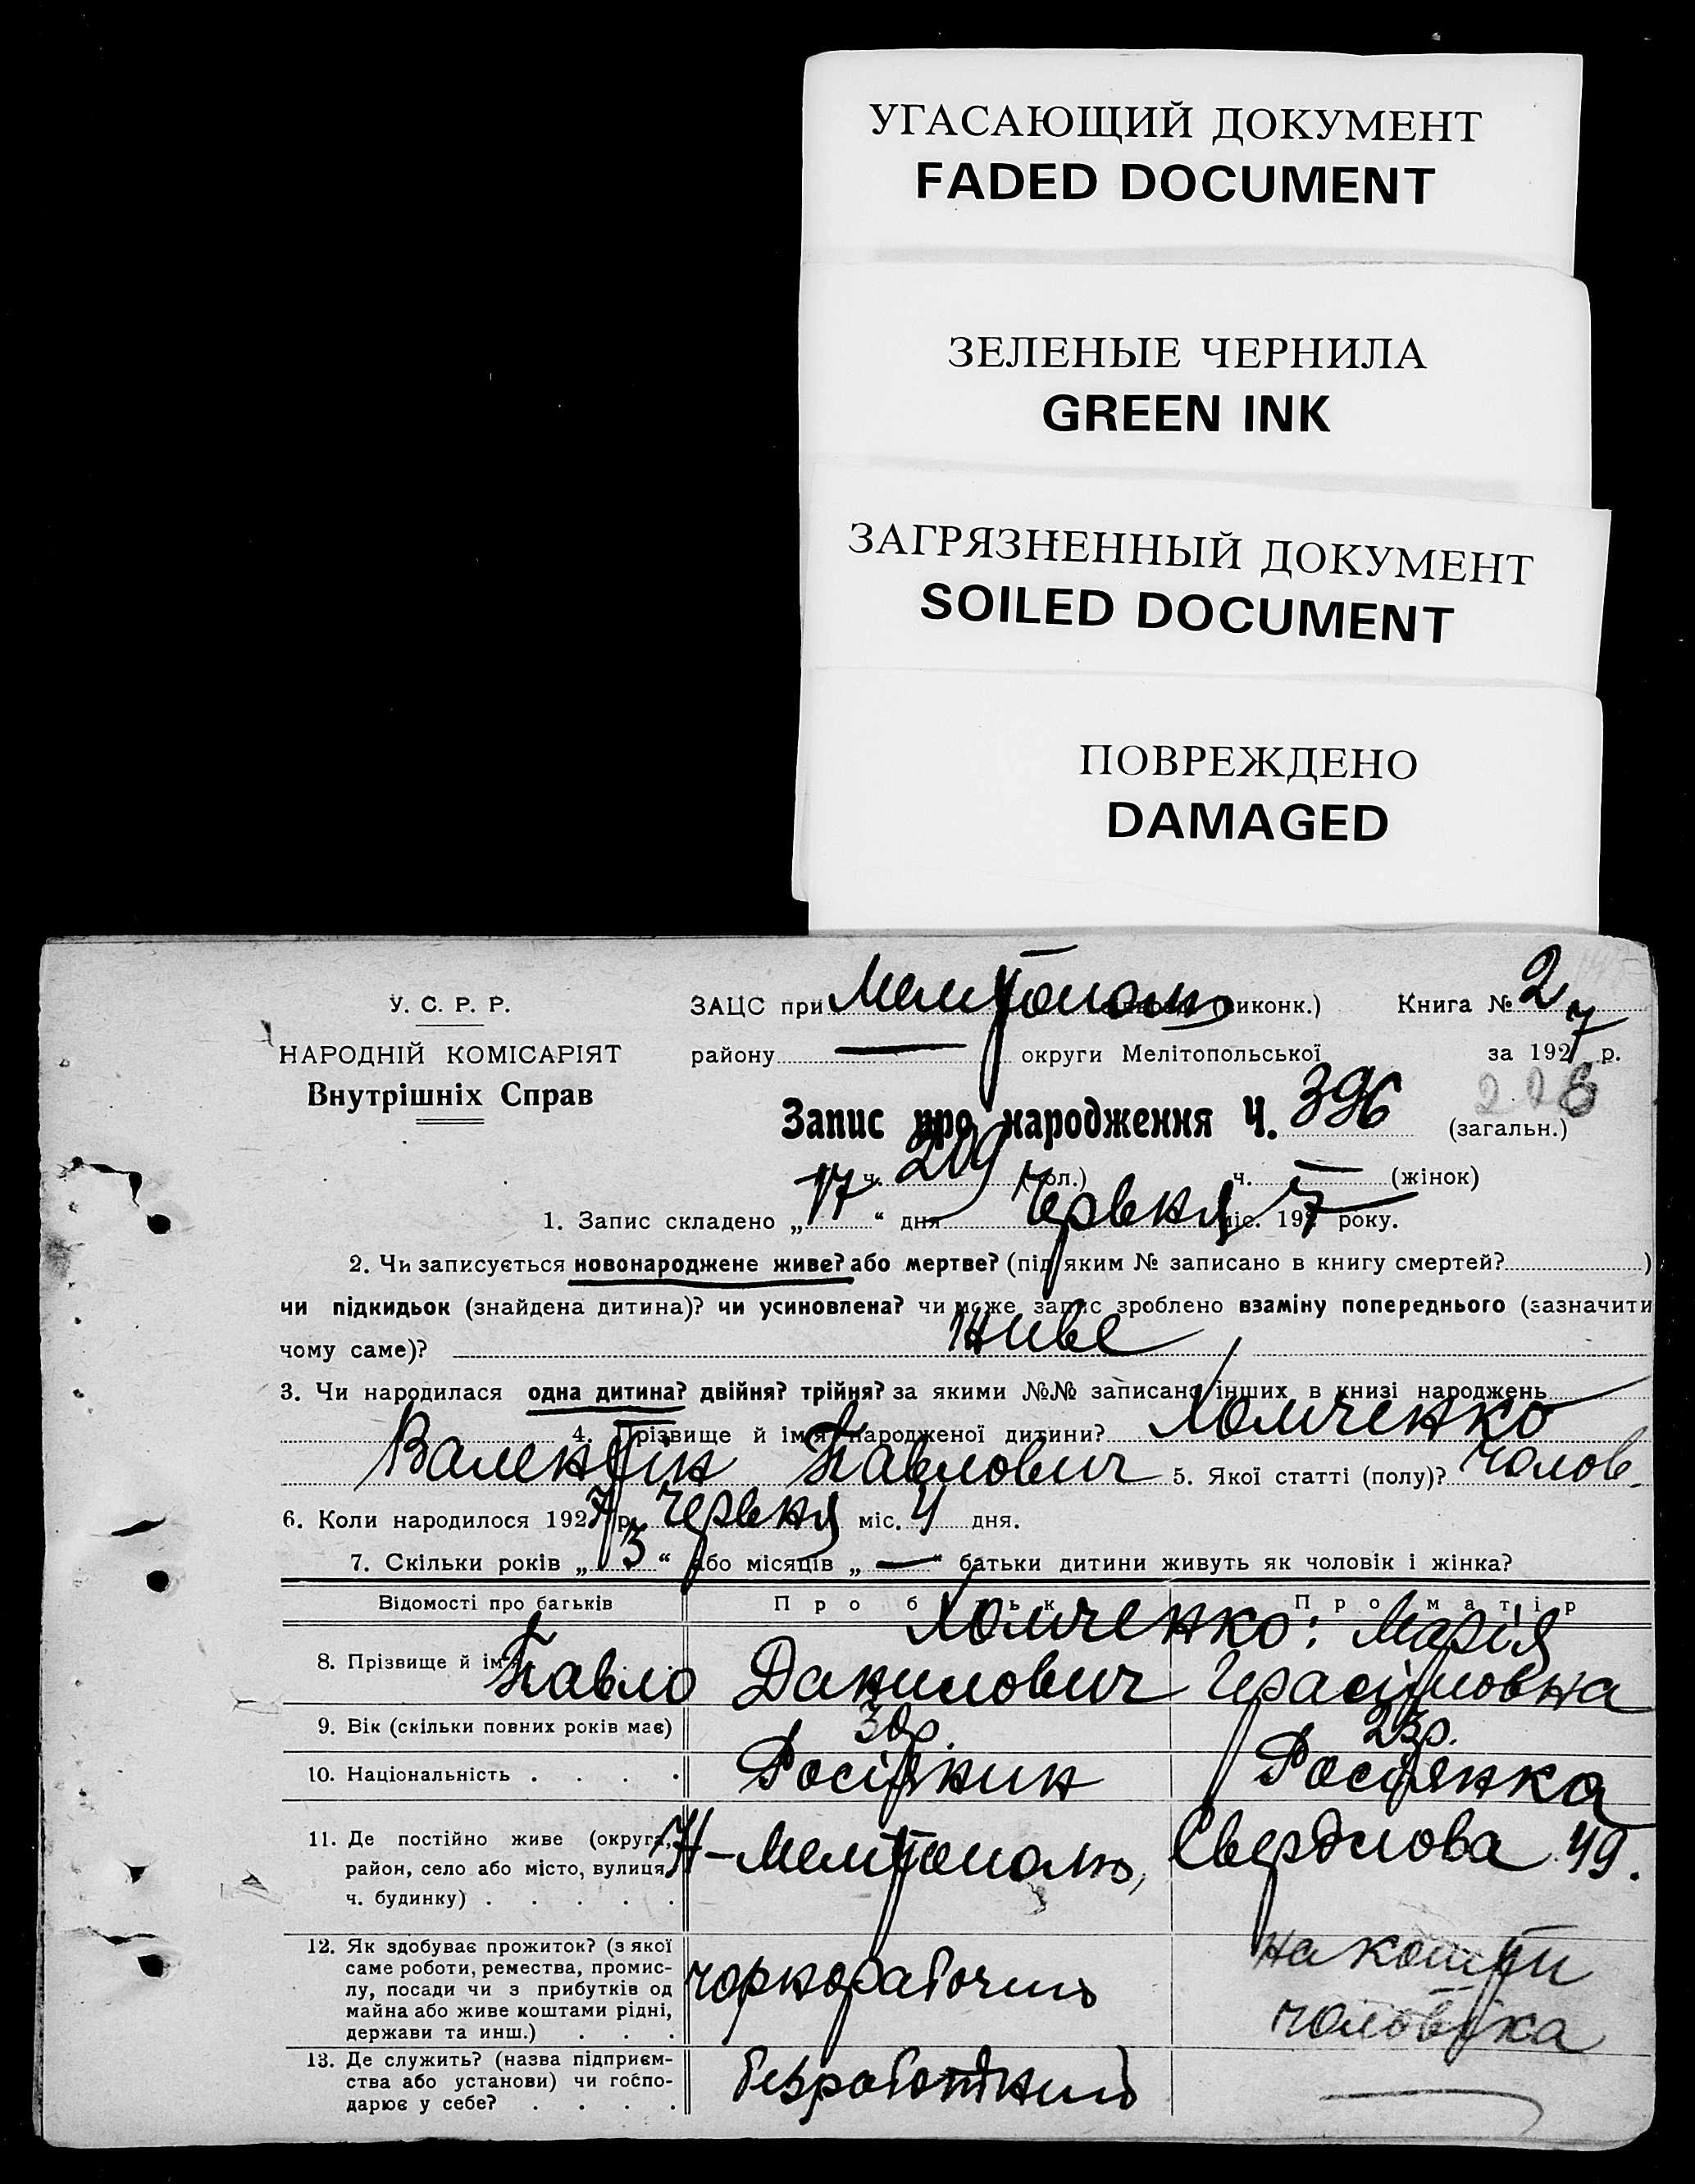 УГАСАЮЩИЙ ДОКУМЕНТ
FADED DOCUMENT
ЗЕЛЕНЫЕ ЧЕРНИЛА
GREEN INK
ЗАГРЯЗНЕННЫЙ ДОКУМЕНТ
SOILED DOCUMENT
ПОВРЕЖДЕНО
DAMAGED
У. С. Р. Р.
НАРОДНІЙ КОМІСАРІЯТ
Внутрішніх Справ
ЗАЦС при Мелітополь виконк.) Книга № 2
району — округи Мелітопольської за 1927 р.
Запис про народження Ч. 396 (загальн.)
208
ч. 209 (чол.) ч. — (жінок)
1. Запис складено „17“ дня Червня міс. 1927 року.
2. Чи записується новонароджене живе? або мертве? (під яким № записано в книгу смертей? )
чи підкидьок (знайдена дитина)? чи усиновлена? чи може запис зроблено взаміну попереднього (зазначити
чому саме)? живе
3. Чи народилася одна дитина? двійня? трійня? за якими №№ записано інших в книзі народжень —
4. Прізвище й ім'я народженої дитини? Хомченко
Валентін Павлович 5. Якої статті (полу)? чолов.
6. Коли народилося 1927 р. Червня міс. 4 дня.
7. Скільки років „3“ або місяців „—“ батьки дитини живуть як чоловік і жінка?
Відомості про батьків Про батька Про матір
8. Прізвище й ім'я Хомченко: Марія
Павло Данилович Герасімовна
9. Вік (скільки повних років має) 30р. 23р.
10. Національність . . . . Росіянин Росіянка
11. Де постійно живе (округа,
район, село або місто, вулиця,
ч. будинку) . . . . .
М-Мелітополь, Свердлова 49.
12. Як здобуває прожиток? (з якої
саме роботи, ремества, промис-
лу, посади чи з прибутків од
майна або живе коштами рідні,
держави та инш.) . . .
чорнорабочий
на кошти
чоловіка
13. Де служить? (назва підприєм-
ства або установи) чи госпо-
дарює у себе? . . . .
безработний
—